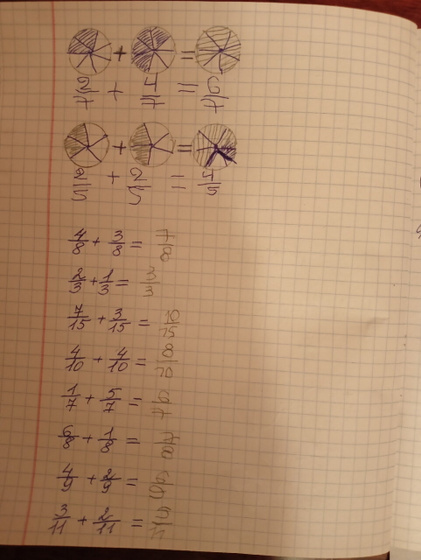 + =
2/7 + 4/7 = 6/7
+ =
2/5 + 2/5 = 4/5
4/8 + 3/8 = 7/8
2/3 + 1/3 = 3/3
7/15 + 3/15 = 10/15
4/10 + 4/10 = 8/10
1/7 + 5/7 = 6/7
6/8 + 1/8 = 7/8
4/9 + 2/9 = 6/9
3/11 + 2/11 = 5/11